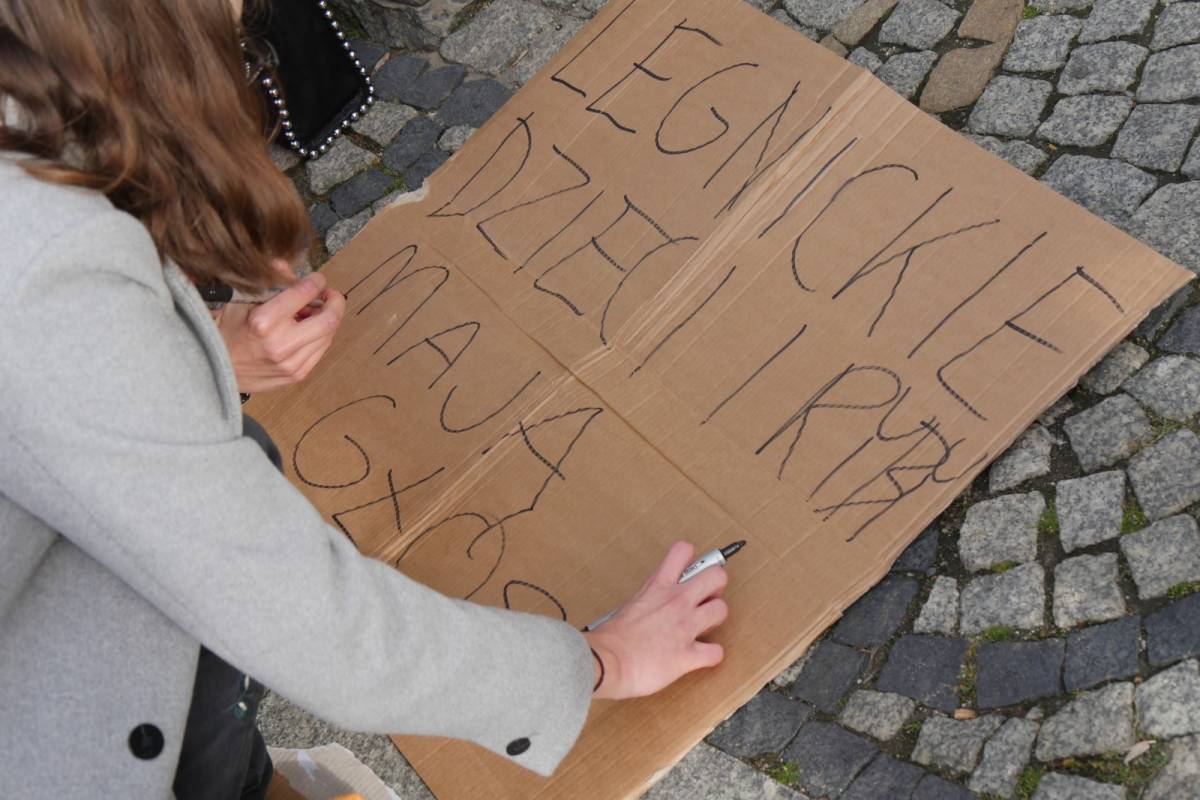 LEGNICKIE
DZIECI I RYBY
MAJĄ
GŁOS